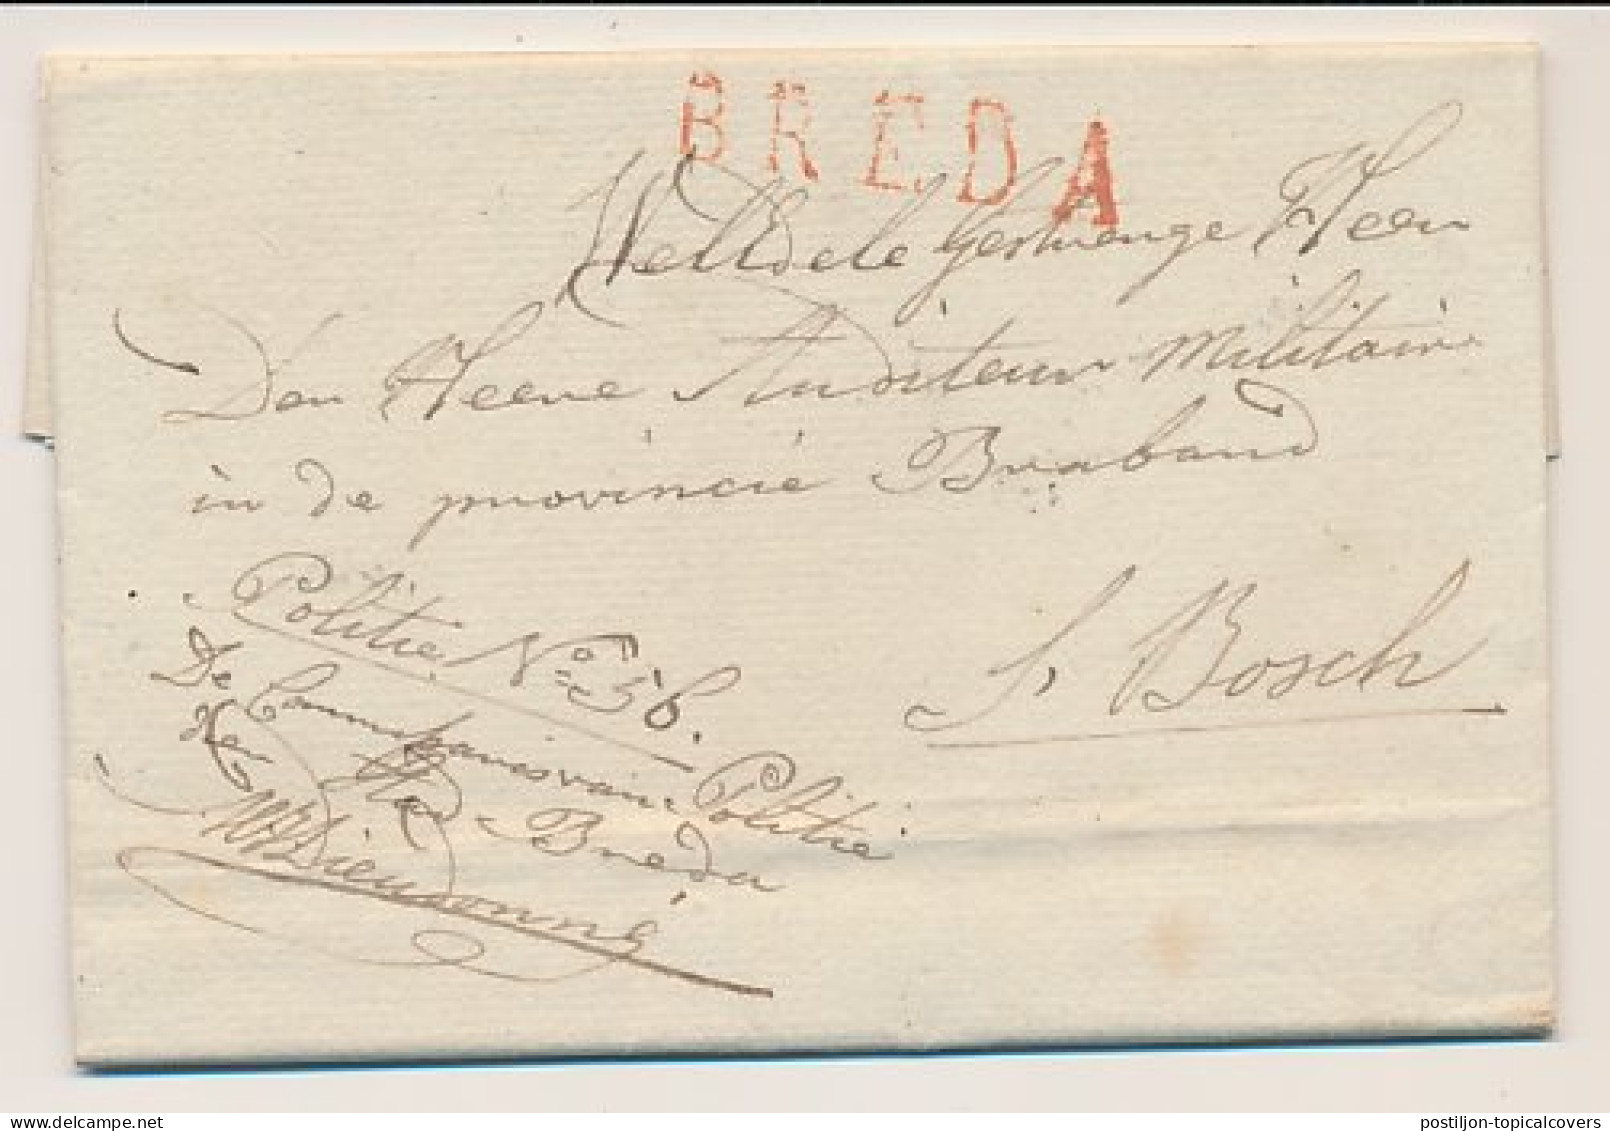 BREDA
WelEdele Gestrenge Heer
Den Heere Auditeur Militair
in de provincie Braband
S. Bosch
Politie No 56.
De Commissaris van Politie
der Stad Breda
Dieudonné
postiljon-topicalcovers